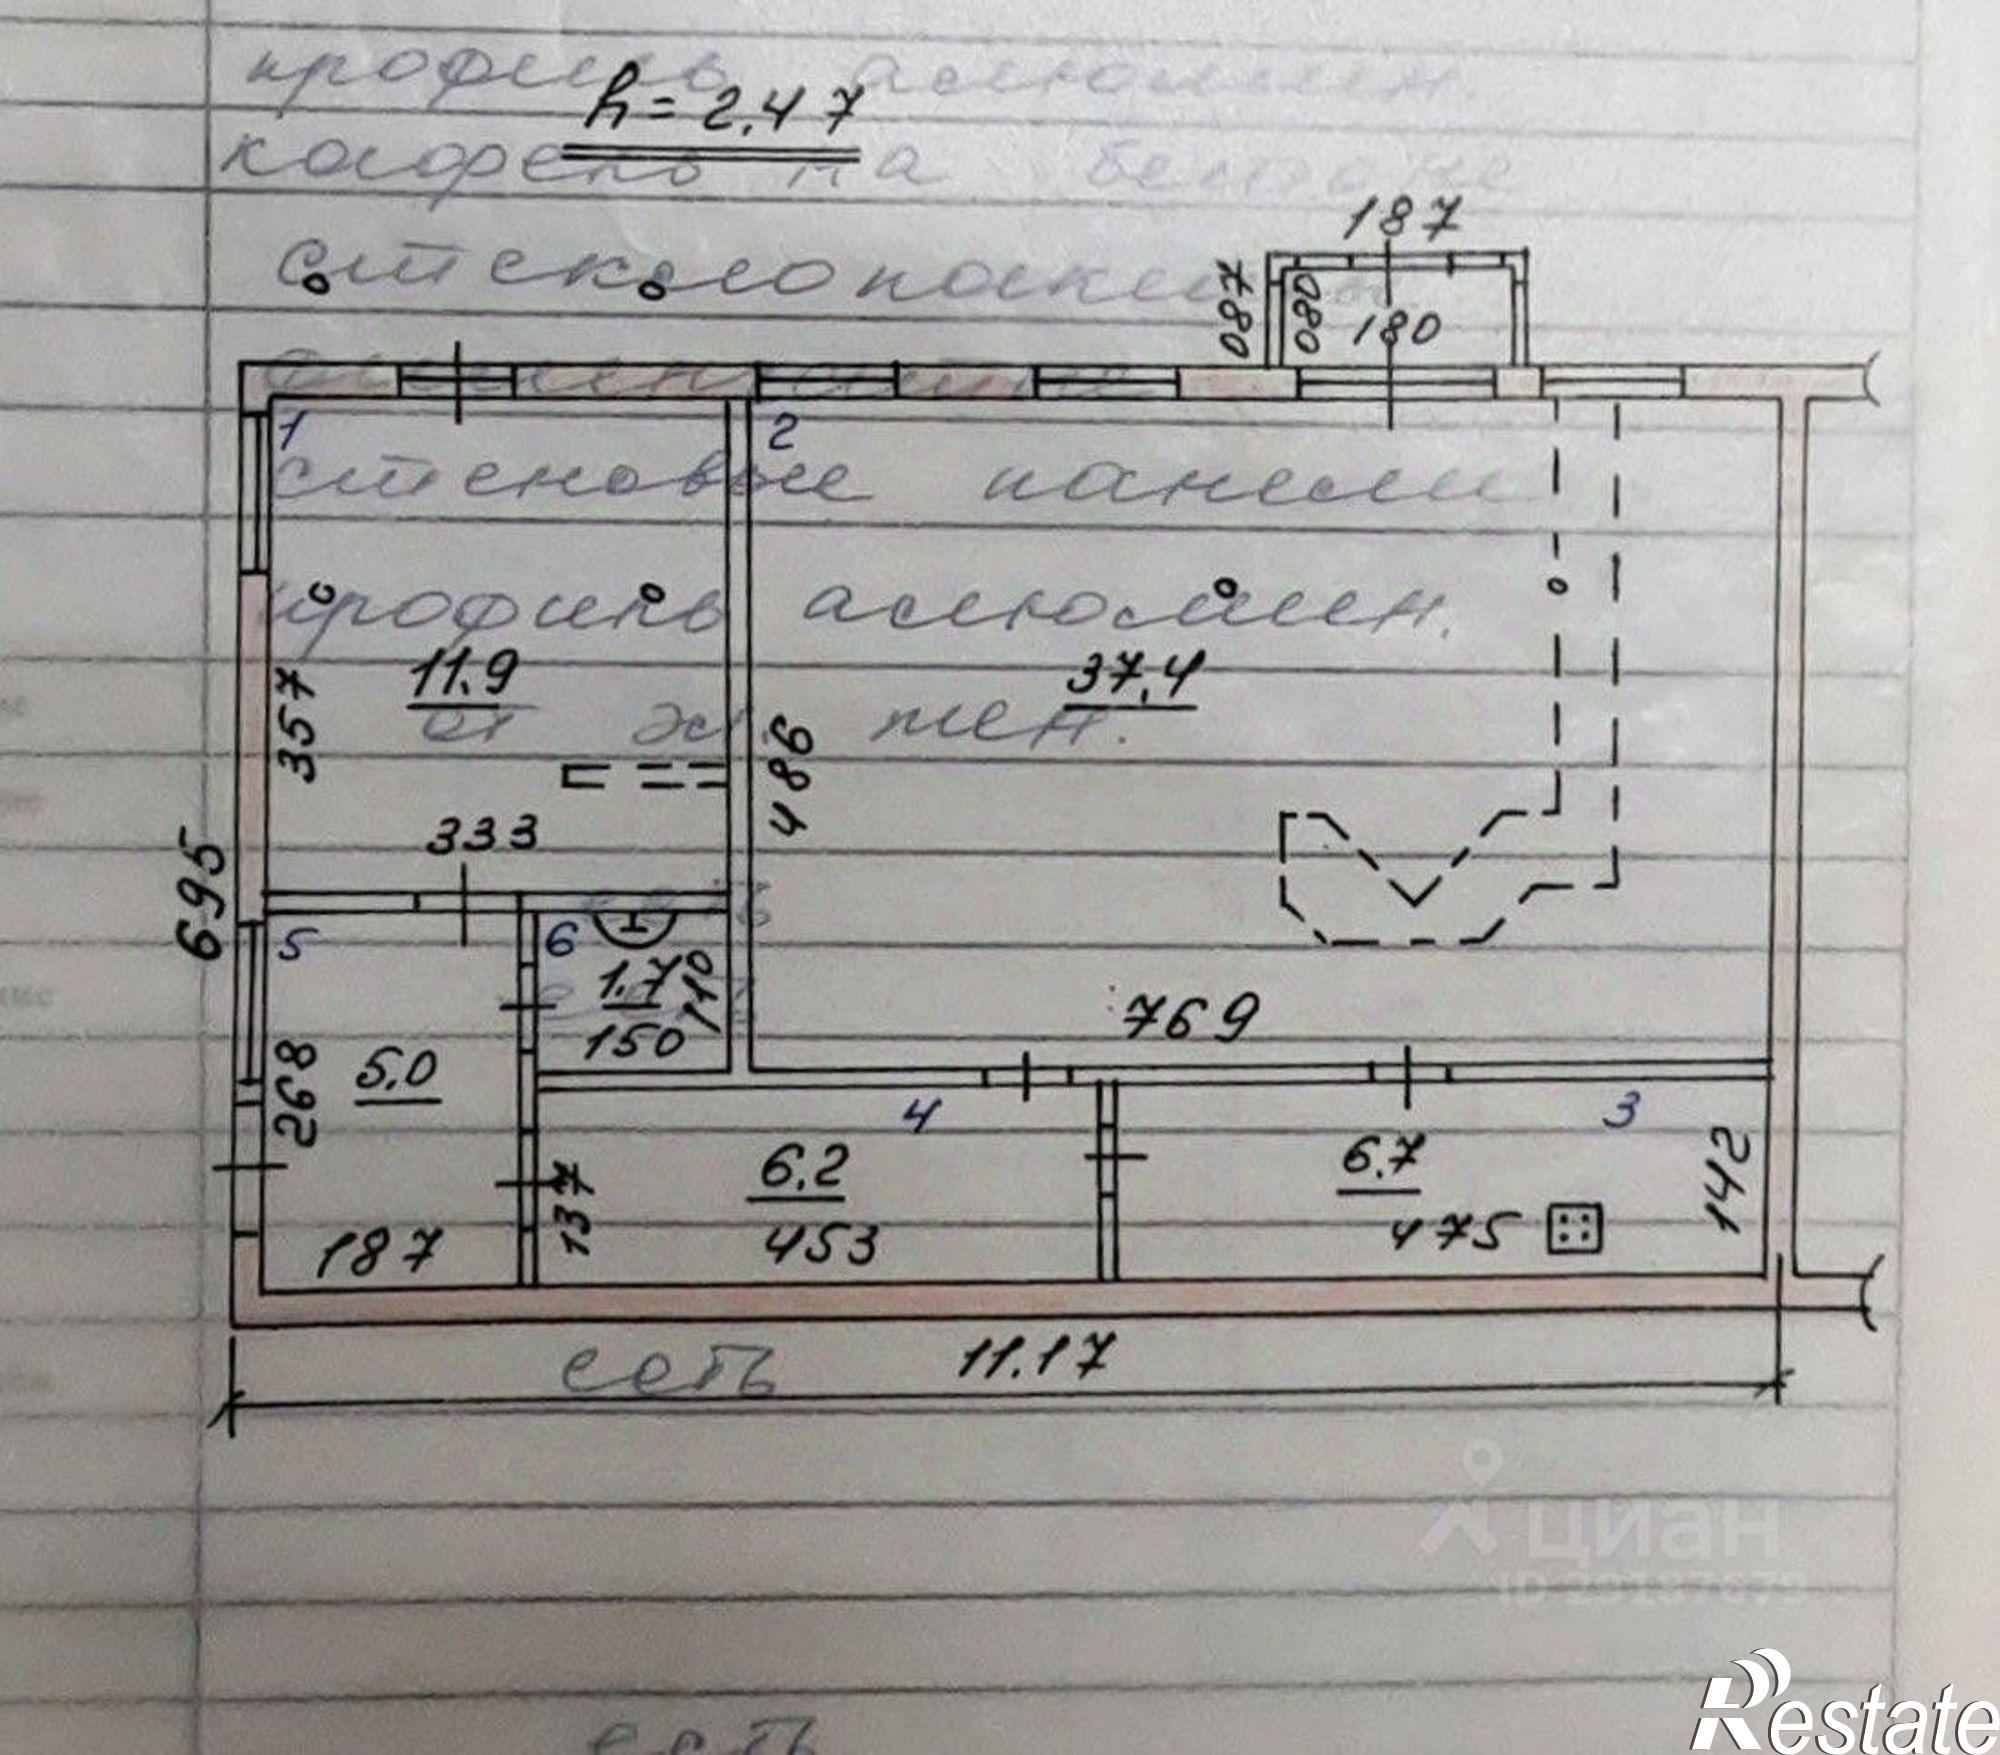 профиль алюмин.
h = 2.47
кафель на бетоне
187
стеклопакет
087
080
180
1
2
стеновые панели
профиль алюмин.
11.9
37.4
357
486
333
695
5
6
1.7
110
150
769
268
5.0
4
3
6.2
6.7
142
137
187
453
475
сеть
11.17
циан
есть
Restate